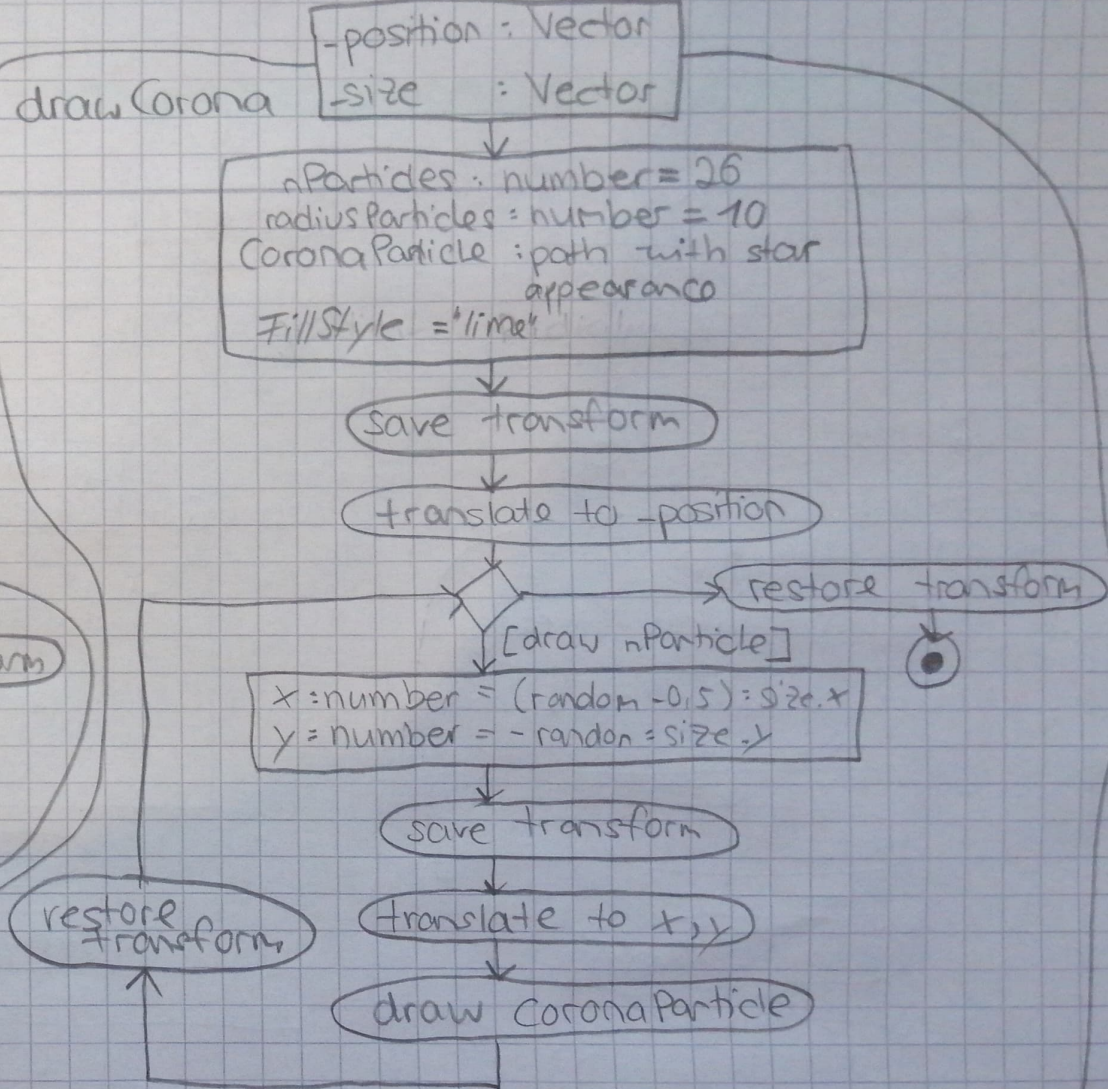 -position : Vector
-size : Vector
drawCorona
nParticles : number = 26
radiusParticles : number = 10
CoronaParticle : path with star
appearance
FillStyle = "lime"
save transform
translate to -position
restore transform
[draw nParticle]
x : number = (random -0,5) : size.x
y : number = - random : size.y
save transform
restore
transform
translate to x,y
draw CoronaParticle